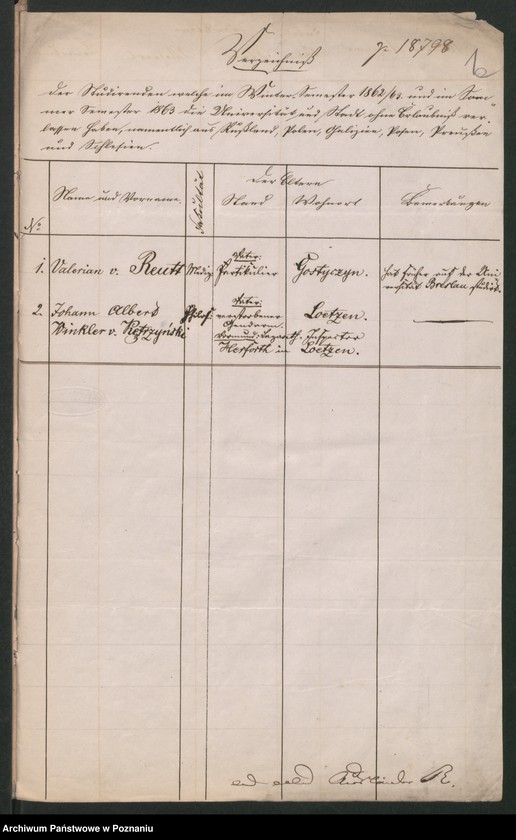 Verzeichniß
p. 18798
16
der Studirenden welche im Winter-Semester 1862/63. und im Som-
mer Semester 1863 die Universität und Stadt ohne Erlaubniß ver-
lassen haben, namentlich aus Rußland, Polen, Galizien, Posen, Preußen
und Schlesien.
No.
Name und Vorname
Fakultät
der Eltern
Stand
Wohnort
Bemerkungen
1. Valerian v. Reutt Mediz. Vater: Partikulier Gostyczyn. hat früher auf der Uni-
versität Breslau studirt.
2. Johann Albert Philos. Vater: Loetzen.
Winkler v. Kętrzyński verstorbener
Gendarm.
Vormund: Lazareth-Inspector
Herforth in Loetzen.
Archiwum Państwowe w Poznaniu